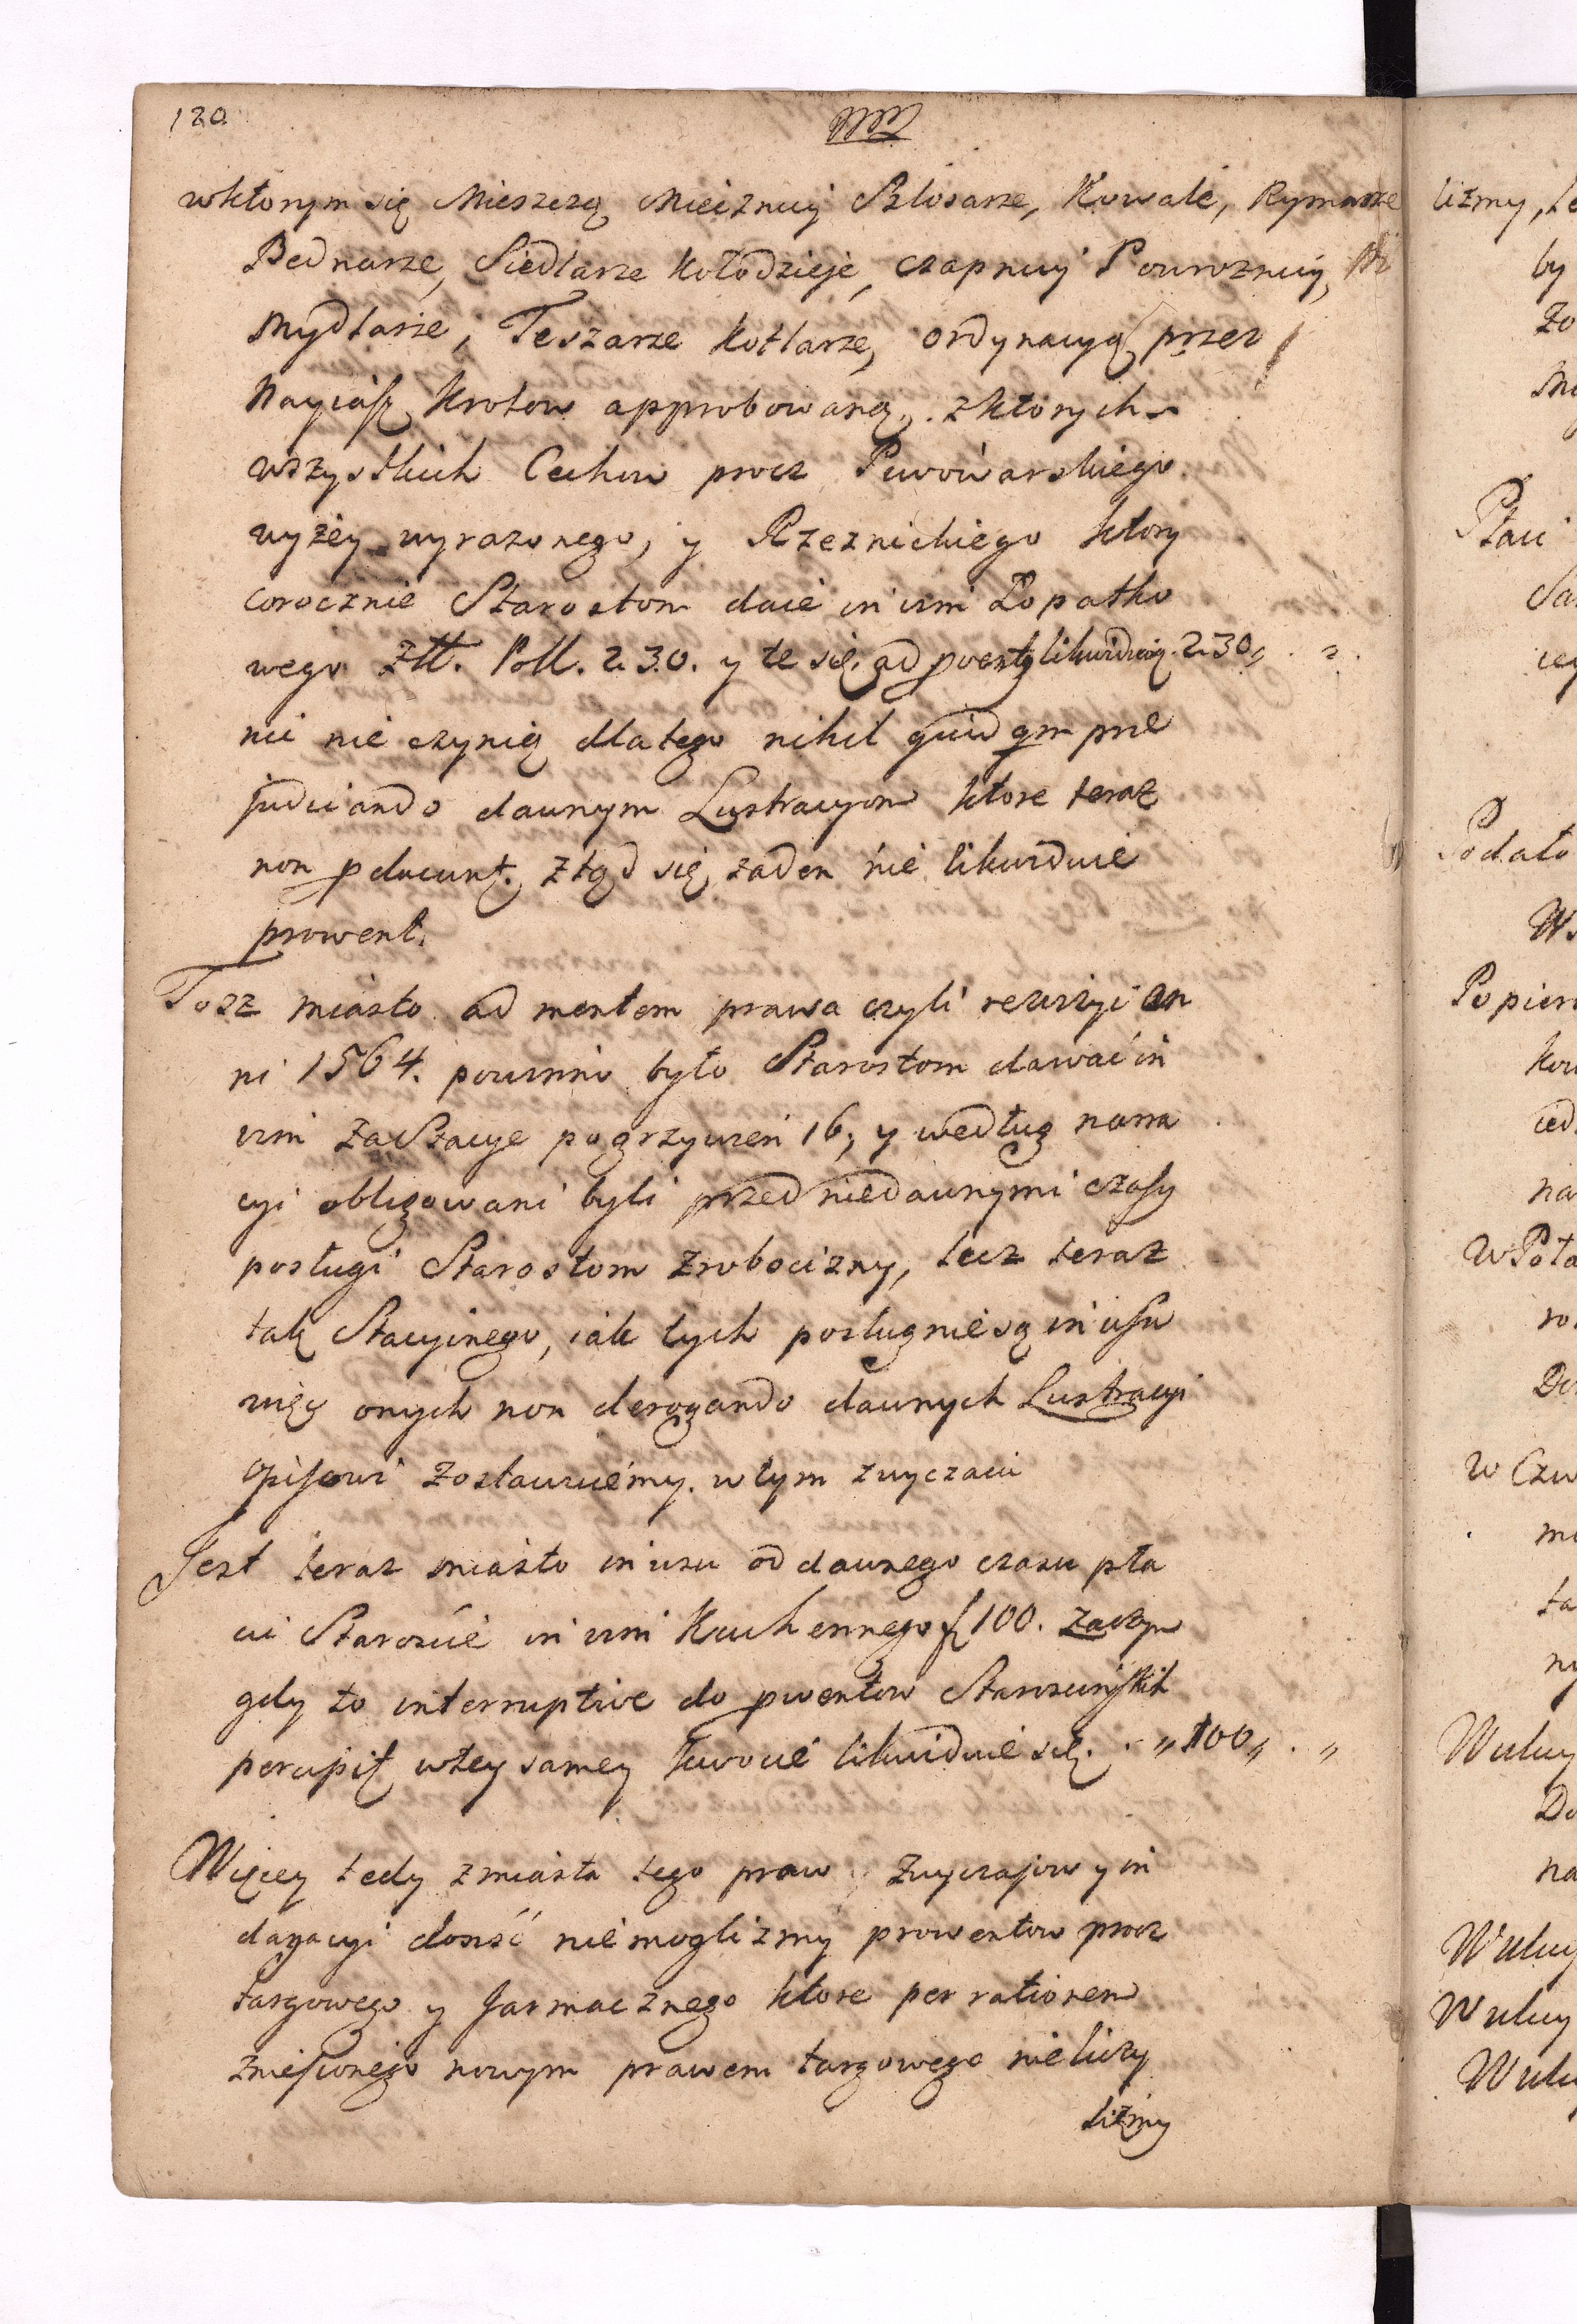 120
wktorym się Mieszczą Miecznicy Szlosarze, Kowale, Rymarze
Bednarze, Siedlarze Kołodzieje, czapnicy Powroznicy,
Mydlarze, Teszarze Kotlarze, ordynacyą przez
Nayiaś. Krolow approbowaną, zktorych
wszystkich Cechow procz Piwowarskiego
wyżey wyrazonego, y Rzeznickiego ktory
corocznie Starostom daie in vim Łopatko
wego Złł. Poll. 230. y te się ad likwidacią. 230 „ . „
nic nie czynią dlatego nihil quidqm pre
judiciando dawnym Lustracyom ktore teraz
non pducunt. ztąd się zaden nie likwiduie
prowent.
Tosz miasto ad mentem prawa czyli rewizyi an
ni 1564. powinno było Starostom dawać in
vim Stacye pogrzywien 16, y według narra
cyi obligowani byli przed niedawnymi czasy
posługi Starostom z robocizny, lecz teraz
tak Stacyinego, iak tych posług nie są in usu
więc onych non derogando dawnych Lustracyi
opisowi zostawuiemy. w tym zwyczaiu
Jest teraz miasto in usu od dawnego czasu pła
ci Starościc in vim Kuchennego f 100. zaczym
gdy to interruptive do pwentow Starościńskich
percipit wtey samey kwocie likwiduie się. . „ 100 „ . „
Więcey tedy z miasta tego praw, zwyczajow y in
dagacyi dosść niemoglizmy prowentow procz
targowego y Jarmacznego ktore per rationem
zniesionego nowym prawem targowego nie liczy
lizmy
lizmy, te
by
Zo
Płaci
Sa
cey
Podało
Popiera
kow
na
W Poła
ro
W Czw
mi
ta
ny
Wulicy
Do
na
Wulicy
Wulicy
Wulic